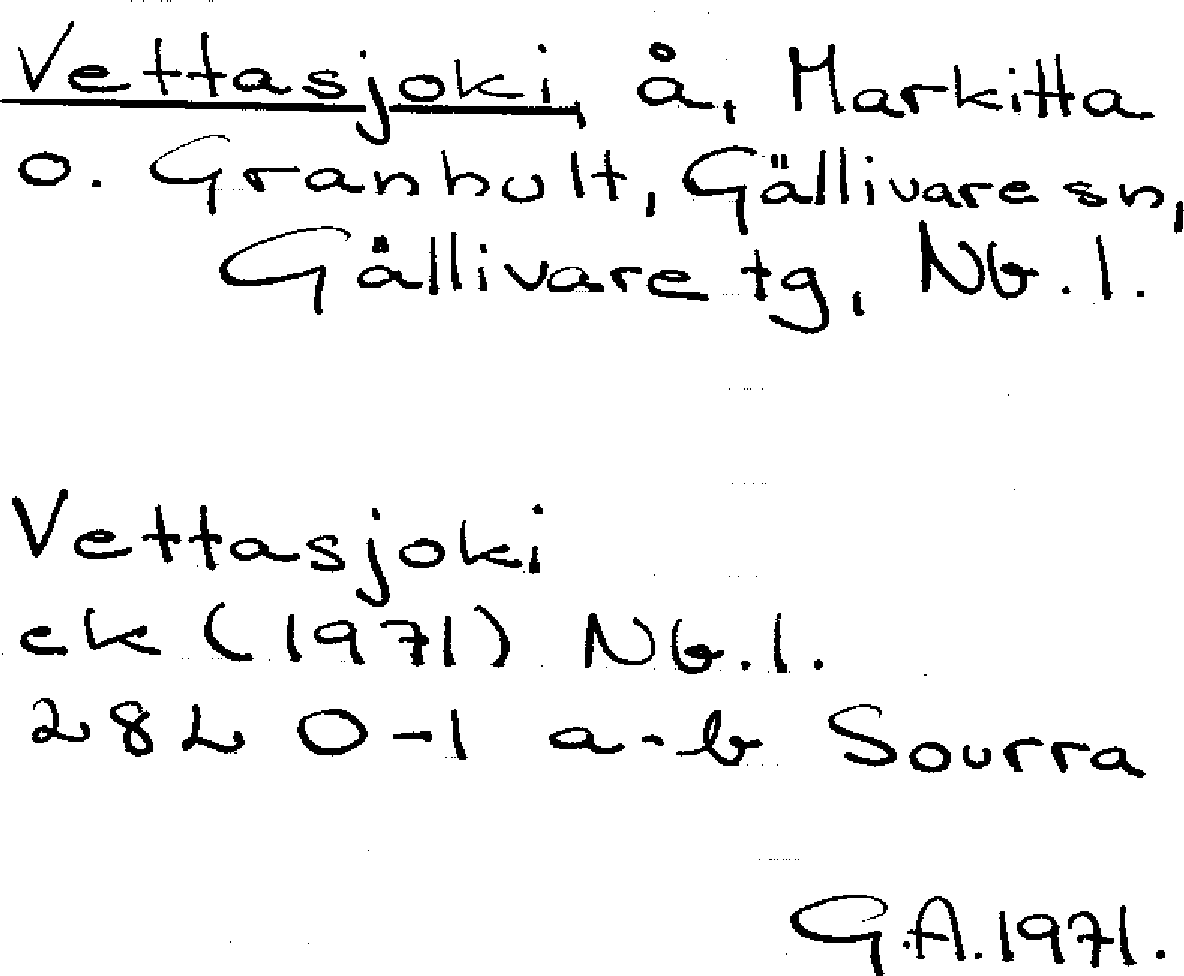 Vettasjoki, å, Markitta
o. Granhult, Gällivare sn,
Gällivare tg, Nb. l.
Vettasjoki
ek (1971) Nb. l.
28L 0-1 a-b Sourra
G.A. 1971.